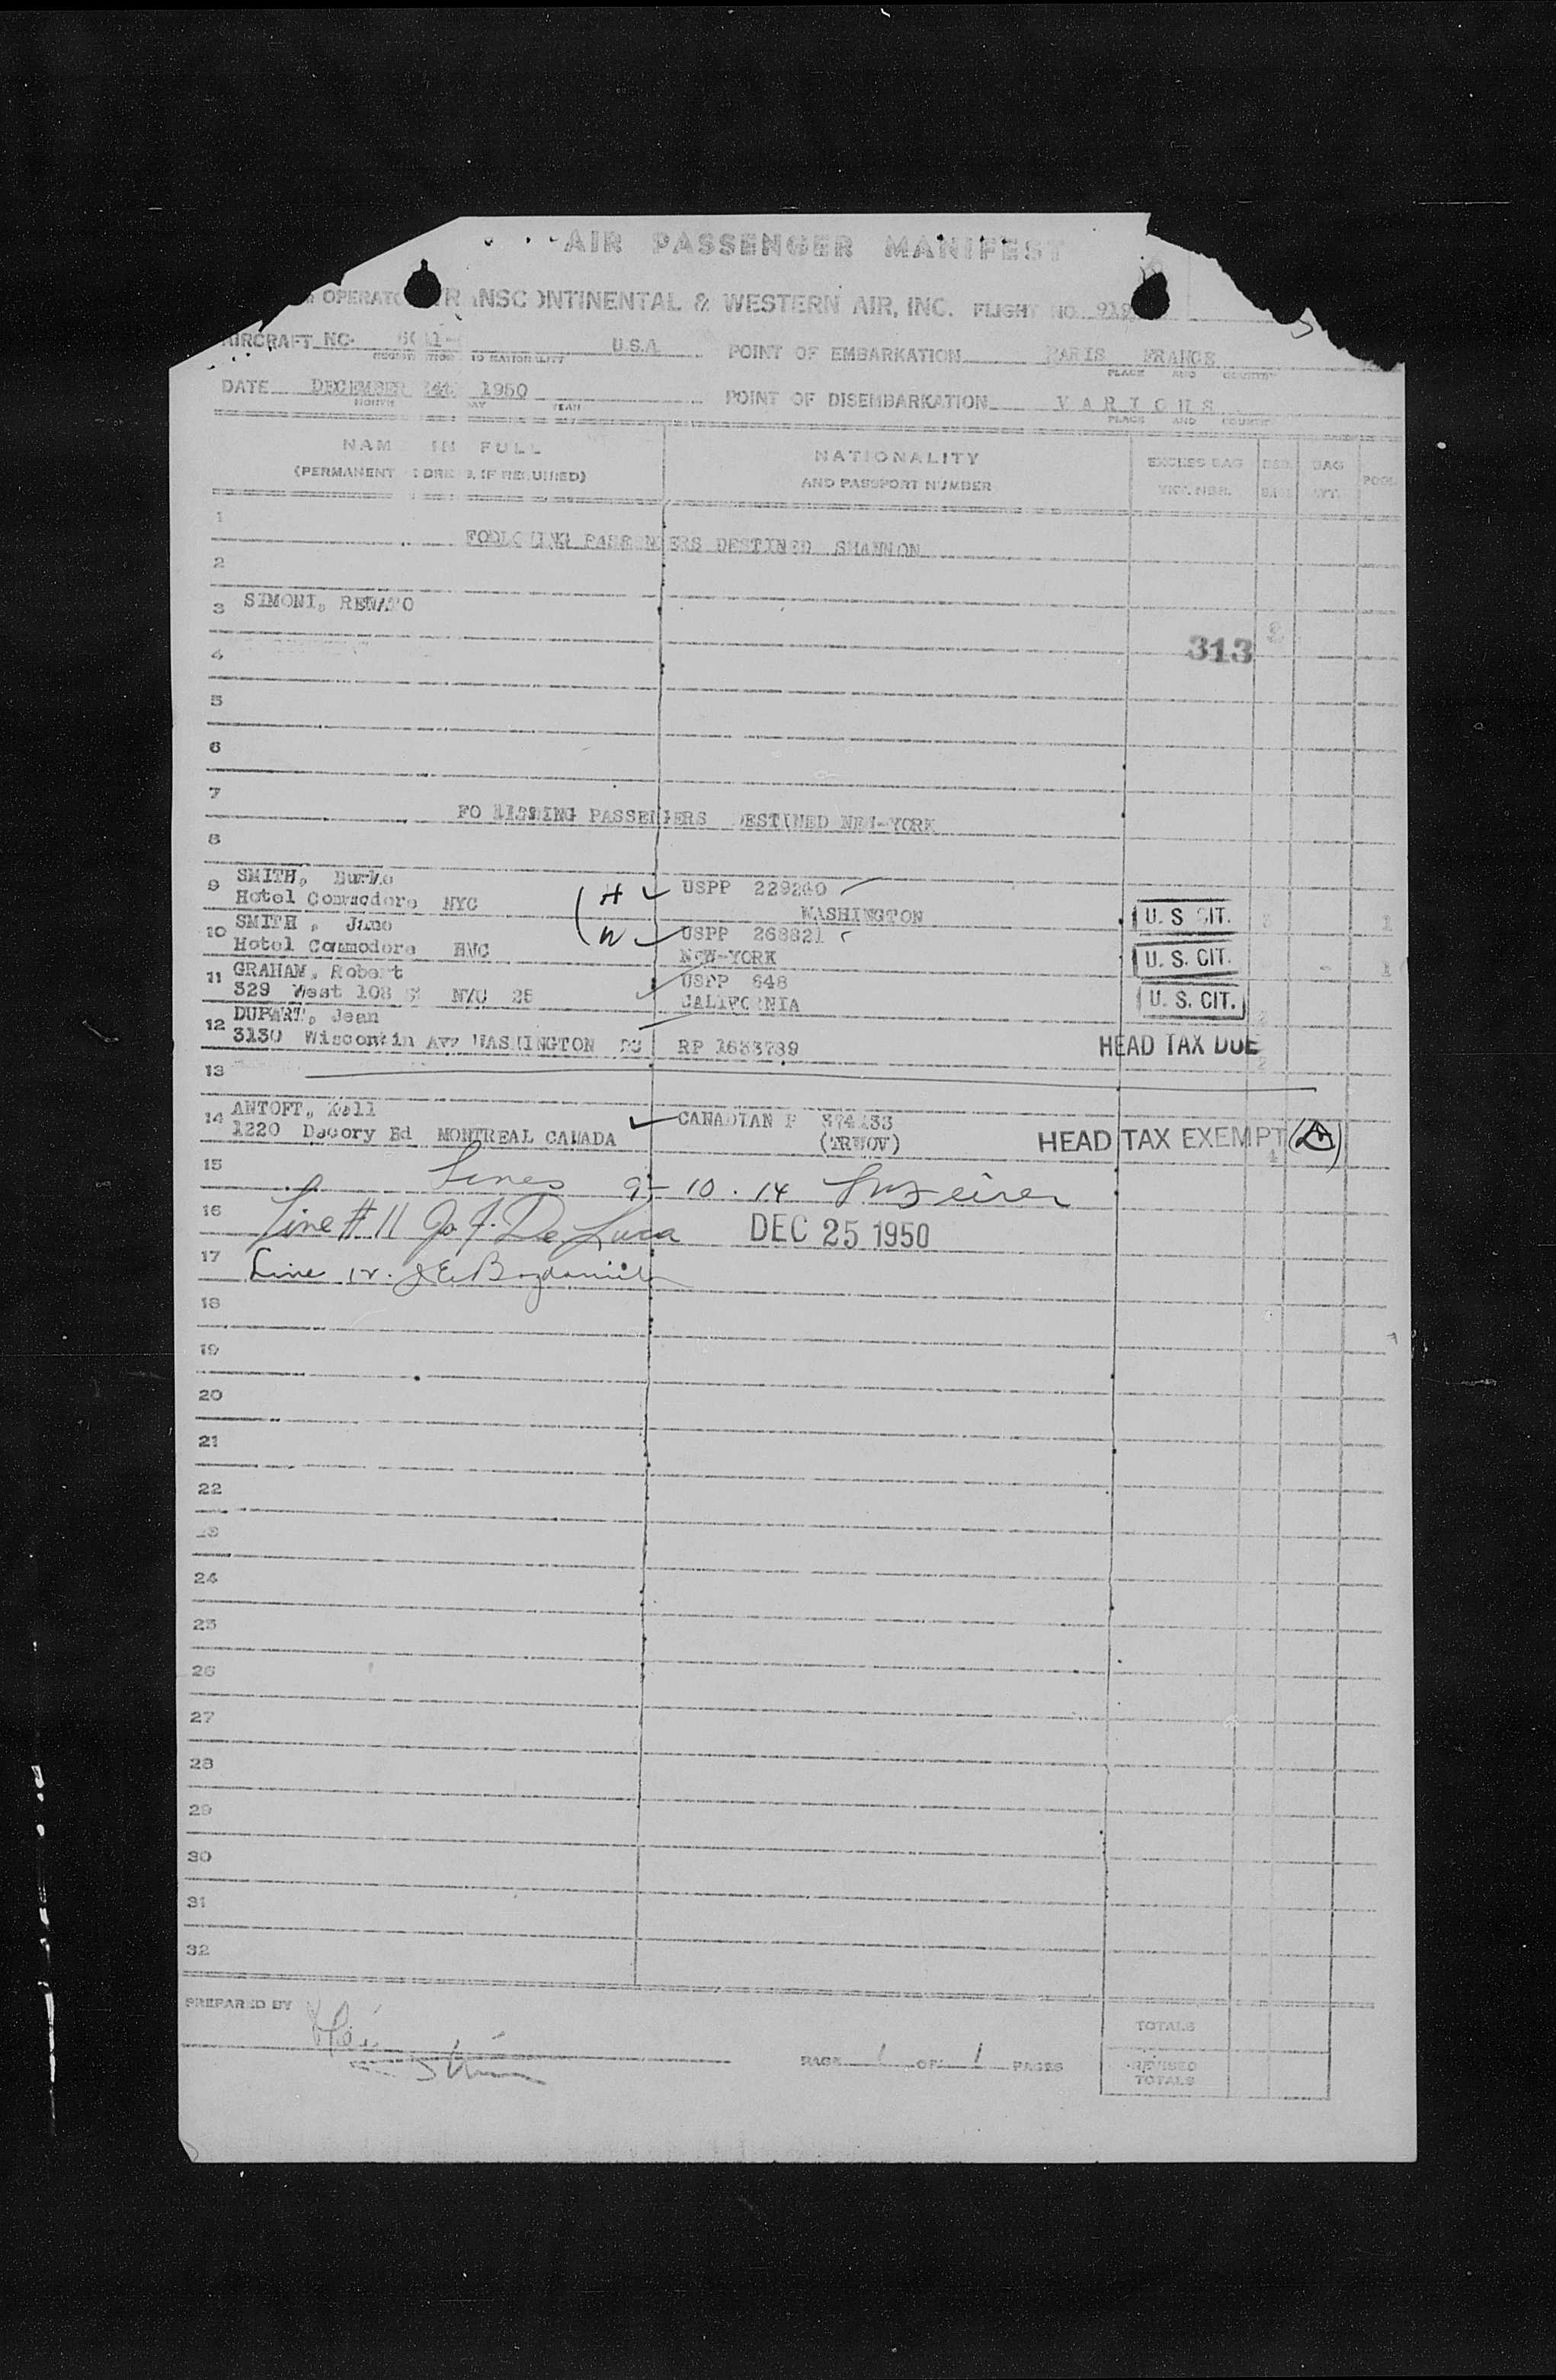 AIR PASSENGER MANIFEST
TRANSCONTINENTAL & WESTERN AIR, INC. FLIGHT NO.
AIRCRAFT NC- U.S.A. POINT OF EMBARKATION PARIS FRANCE
PLACE AND COUNTRY
DATE DECEMBER 1950 POINT OF DISEMBARKATION VARIOUS
MONTH DAY YEAR PLACE AND COUNTRY
NAME IN FULL NATIONALITY EXCESS BAG BAG
(PERMANENT ADDRESS, IF REQUIRED) AND PASSPORT NUMBER
1
PASSENGERS DESTINED SHANNON
2
3 SIMONI, RENATO
313
4
5
6
7
PASSENGERS DESTINED NEW-YORK
8
9 SMITH, H USPP
Hotel Commodore NYC WASHINGTON U. S. CIT. 1
10 SMITH , W USPP 268821
Hotel Commodore NEW-YORK U. S. CIT. 1
11 GRAHAM, Robert USPP 648
329 West 108 NYC 25 CALIFORNIA U. S. CIT.
12 Jean
3130 Wisconsin WASHINGTON RP 1633789 HEAD TAX DUE
13
14 ANTOFT, Kell CANADIAN P
1220 MONTREAL CANADA HEAD TAX EXEMPT
15 Lines 9-10.14
16 Line #11 Jo J. De Luca DEC 25 1950
17 Line 12.
18
19
20
21
22
23
24
25
26
27
28
29
30
31
32
PREPARED BY
TOTALS
PAGE 1 OF 1 PAGES
REVISED
TOTALS